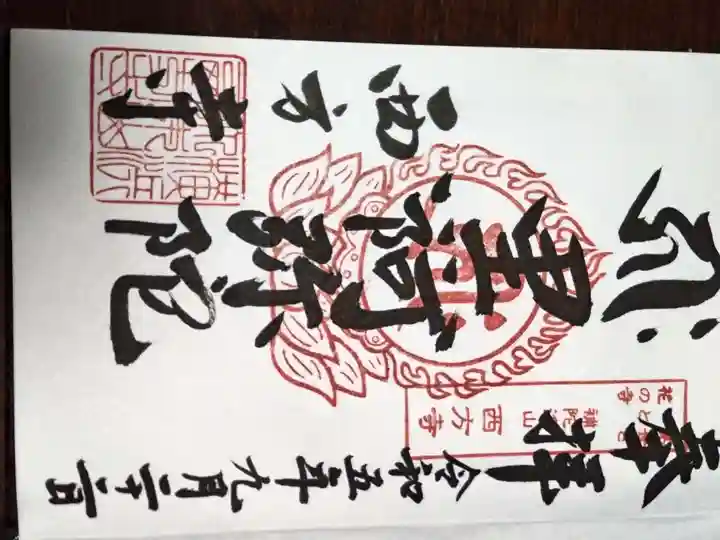 奉拝
令和五年九月二十一日
花の寺
補陀洛山
西方寺
黒阿弥陀
西方寺